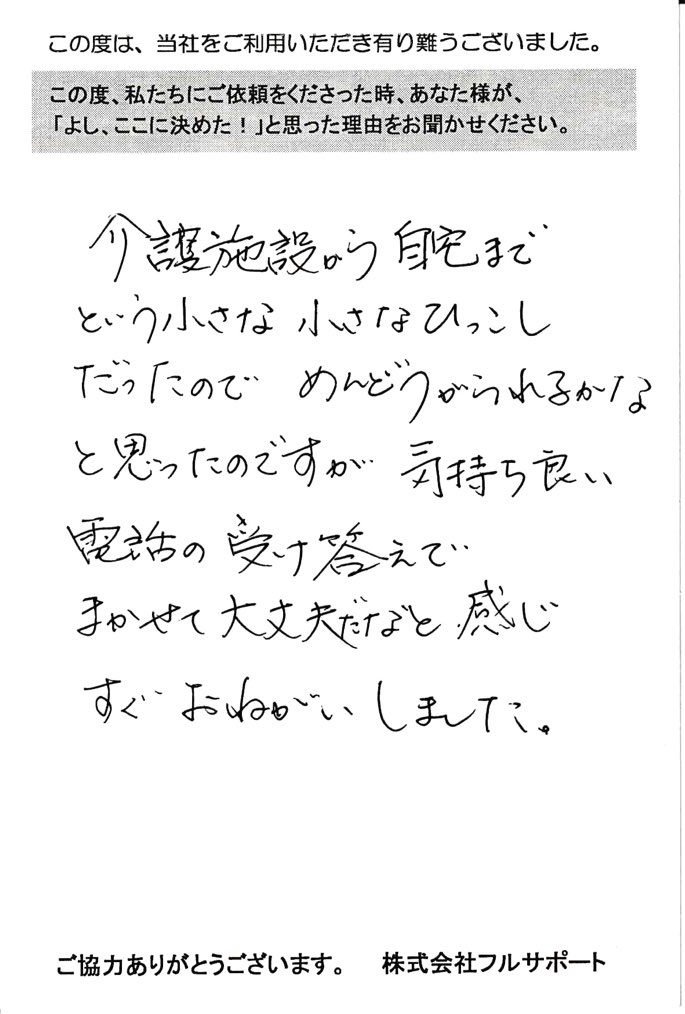 この度は、当社をご利用いただき有り難うございました。
この度、私たちにご依頼をくださった時、あなた様が、
「よし、ここに決めた！」と思った理由をお聞かせください。
介護施設から 自宅まで
という小さな 小さなひっこし
だったので めんどうがられるかな
と思ったのですが 気持ち良い
電話の 受け答えで
まかせて大丈夫だなと 感じ
すぐ おねがい しました。
ご協力ありがとうございます。 株式会社フルサポート